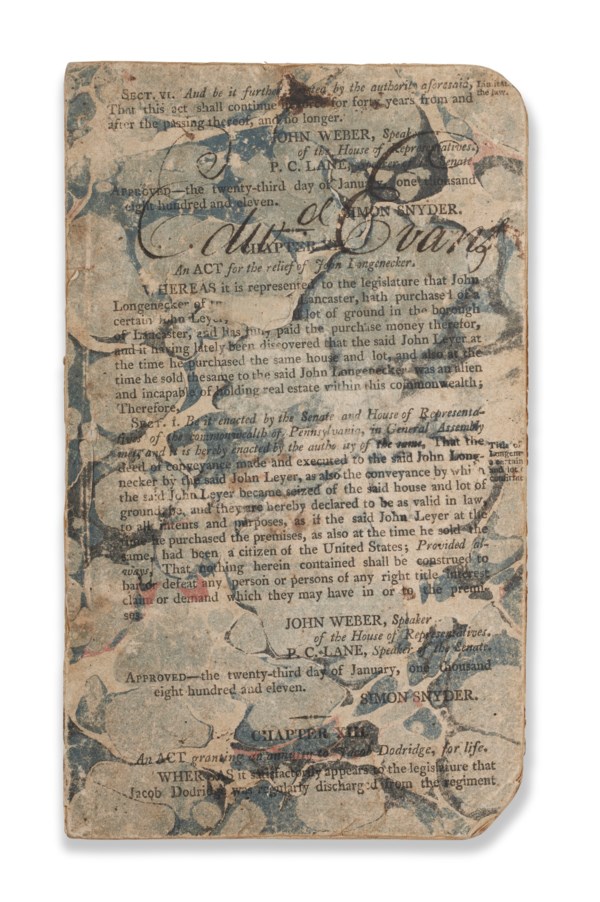 SECT. VI. And be it further enacted by the authority aforesaid,
That this act shall continue in force for forty years from and
after the passing thereof, and no longer.
JOHN WEBER, Speaker
of the House of Representatives.
P. C. LANE, Speaker of the Senate.
APPROVED—the twenty-third day of January, one thousand
eight hundred and eleven.
SIMON SNYDER.
Edwd Evans
CHAPTER
An ACT for the relief of John Longenecker.
WHEREAS it is represented to the legislature that John
Longenecker of Lancaster, hath purchased of a
certain John Leyer, lot of ground in the borough
of Lancaster, and has fully paid the purchase money therefor,
and it having lately been discovered that the said John Leyer at
the time he purchased the same house and lot, and also at the
time he sold the same to the said John Longenecker was an alien
and incapable of holding real estate within this commonwealth;
Therefore,
SECT. I. Be it enacted by the Senate and House of Representa-
tives of the commonwealth of Pennsylvania, in General Assembly
met, and it is hereby enacted by the authority of the same, That the
deed of conveyance made and executed to the said John Long-
necker by the said John Leyer, as also the conveyance by which
the said John Leyer became seized of the said house and lot of
ground, be, and they are hereby declared to be as valid in law,
to all intents and purposes, as if the said John Leyer at the
time he purchased the premises, as also at the time he sold the
same, had been a citizen of the United States; Provided al-
ways, That nothing herein contained shall be construed to
bar or defeat any person or persons of any right title interest
claim or demand which they may have in or to the premi-
ses.
Title of
Longene
a certain
and lot
JOHN WEBER, Speaker
of the House of Representatives.
P. C. LANE, Speaker of the Senate.
APPROVED—the twenty-third day of January, one thousand
eight hundred and eleven.
SIMON SNYDER.
CHAPTER XIII.
An ACT granting an annuity to Jacob Dodridge, for life.
WHEREAS it satisfactorily appears to the legislature that
Jacob Dodridge was regularly discharged from the regiment